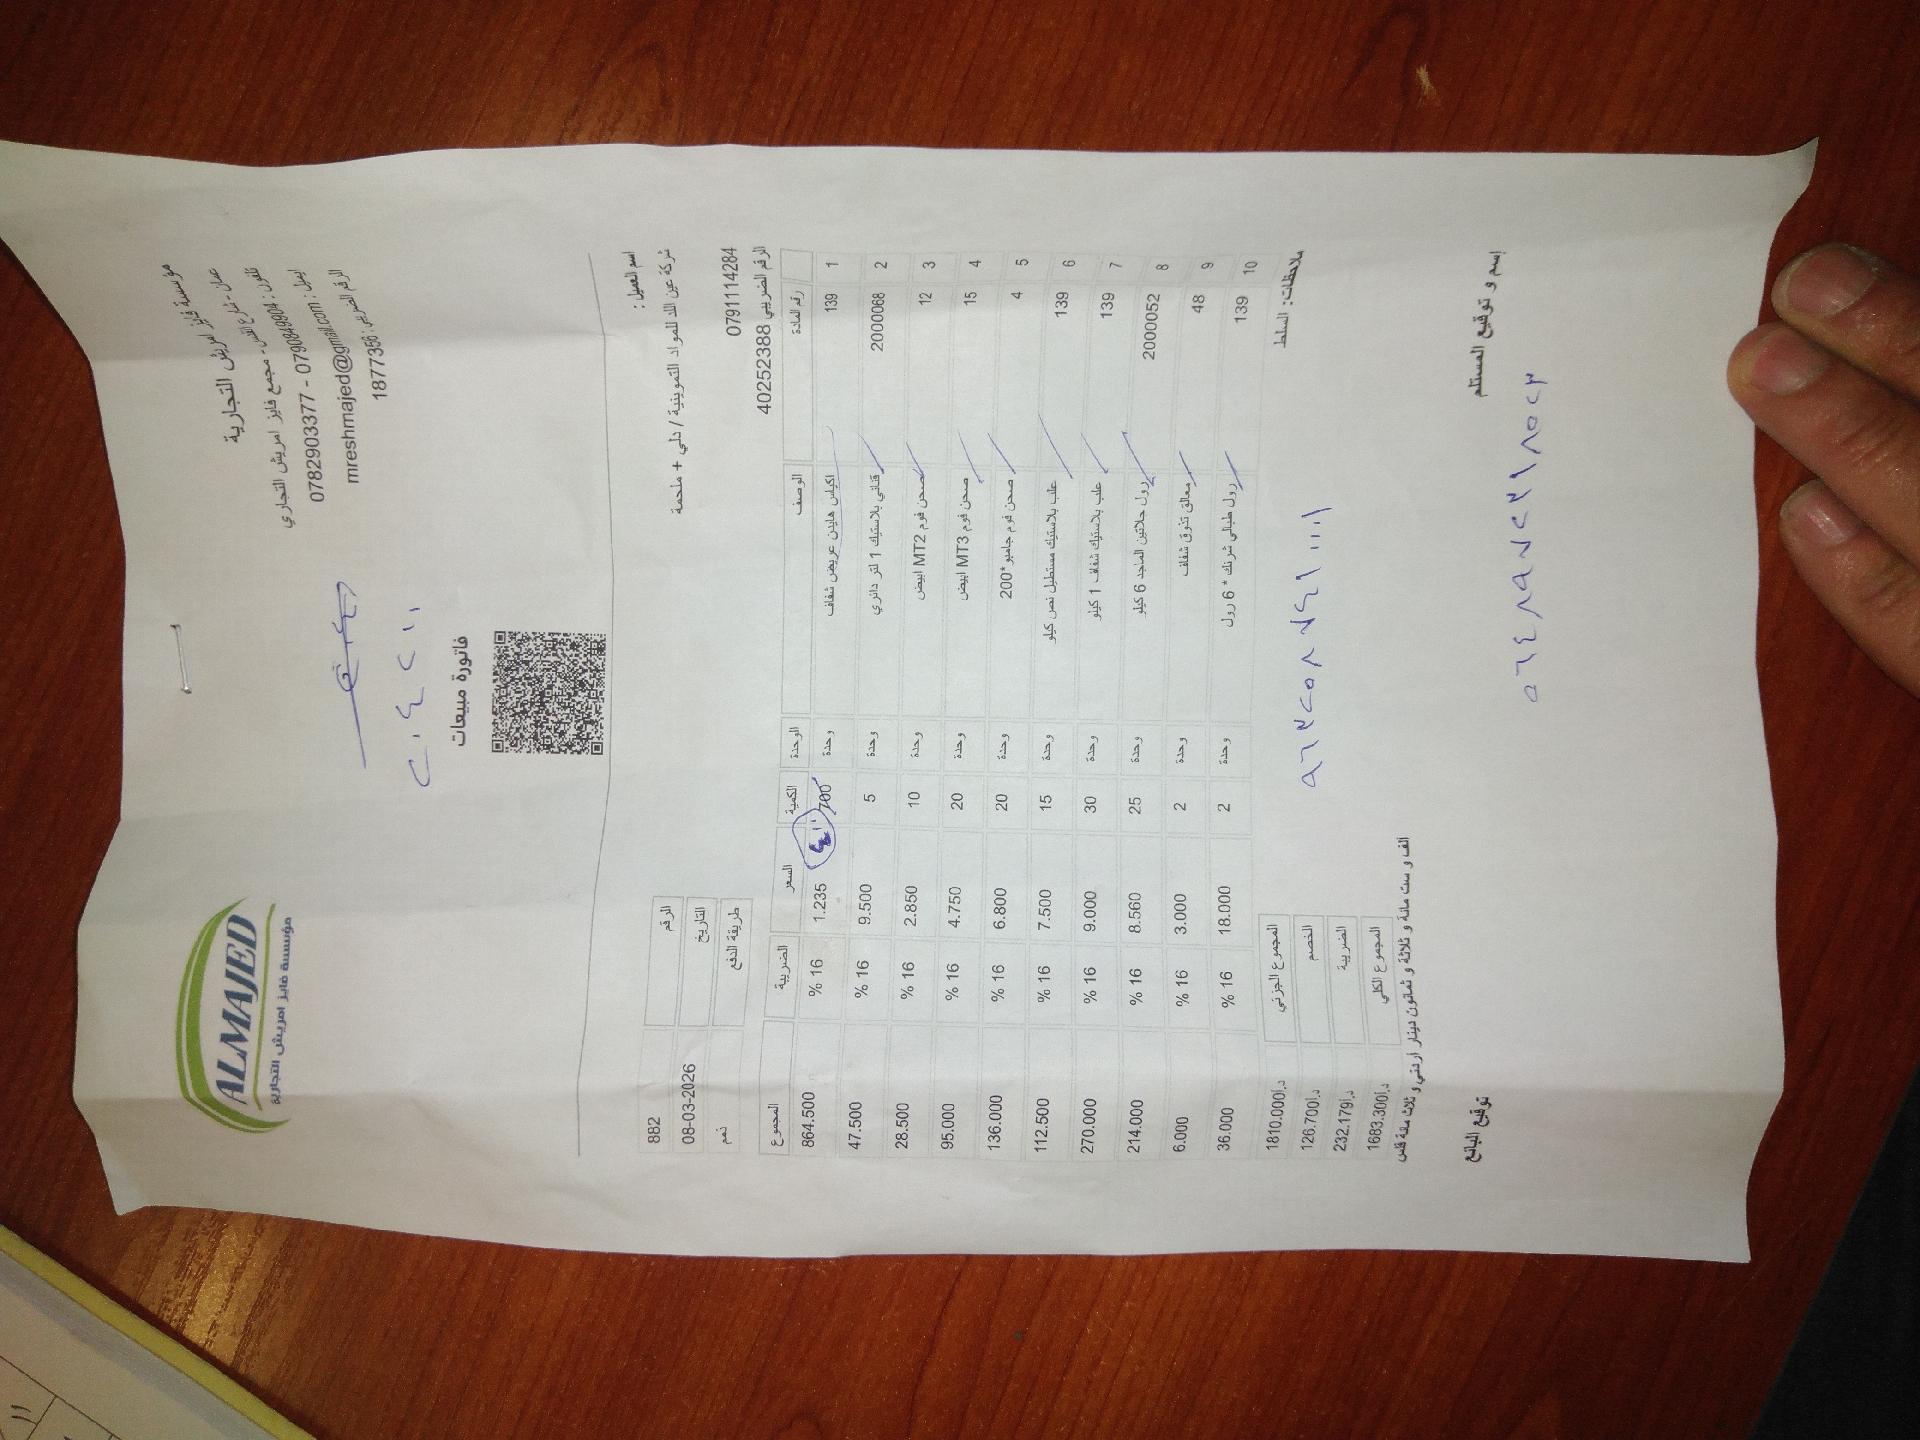 ALMAJED
مؤسسة فايز امريش التجارية
مؤسسة فايز امريش التجارية
عمان - شارع القدس - مجمع فايز امريش التجاري
تلفون : 0790849904 - 0782903377
ايميل : mreshmajed@gmail.com
الرقم الضريبي : 1877356
٢٠٤٢١١
فاتورة مبيعات
اسم العميل :
شركة عين اللد للمواد التموينية / دلي + ملحمة
0791114284
الرقم الضريبي 40252388
الرقم 882
التاريخ 08-03-2026
طريقة الدفع ذمم
رقم المادة الوصف الوحدة الكمية السعر الضريبة المجموع
1 139 اكياس هايدن عريض شفاف وحدة 700 1.235 16 % 864.500
2 2000068 قناني بلاستيك 1 لتر دائري وحدة 5 9.500 16 % 47.500
3 12 صحن فوم MT2 ابيض وحدة 10 2.850 16 % 28.500
4 15 صحن فوم MT3 ابيض وحدة 20 4.750 16 % 95.000
5 4 صحن فوم جامبو*200 وحدة 20 6.800 16 % 136.000
6 139 علب بلاستيك مستطيل نص كيلو وحدة 15 7.500 16 % 112.500
7 139 علب بلاستيك شفاف 1 كيلو وحدة 30 9.000 16 % 270.000
8 2000052 رول جلاتين الماجد 6 كيلو وحدة 25 8.560 16 % 214.000
9 48 معالق تذوق شفاف وحدة 2 3.000 16 % 6.000
10 139 رول طبالي شرنك * 6 رول وحدة 2 18.000 16 % 36.000
ملاحظات: السلط
المجموع الجزئي د.ا1810.000
الخصم د.ا126.700
الضريبة د.ا232.179
المجموع الكلي د.ا1683.300
الف و ست مائة و ثلاثة و ثمانون دينار اردني و ثلاث مائة فلس
٩٦٣٢٥٨٧٤١١٠٠٠
إسم و توقيع المستلم
توقيع البائع